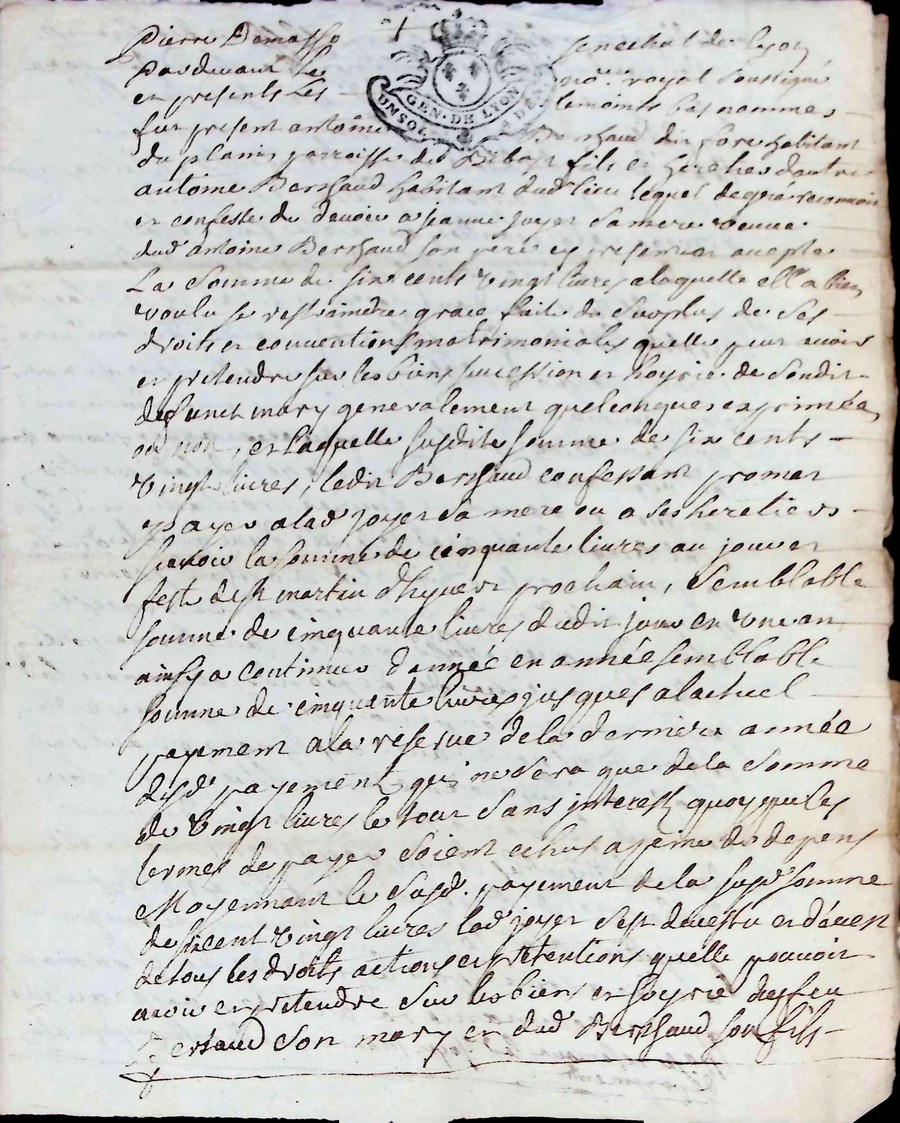 Pierre Demasso
senechal de lyon
Pardevant Le no.re royal soussigné
et presents Les temoints bas nommes
GEN. DE LYON
UN SOL
fut present antoine Berthaud dit fore habitant
du planis parroisse de fils et heretier d'autre
antoine Berthaud habitant dud. lieu lequel de gré reconnoit
et confesse de devoir a jeanne joyer sa mere veuve
dud. antoine Berthaud son pere icy presente et acceptte
La Somme de six cents vingt livres a laquelle ell'a bien
voulu se restraindre grace faite du surplus de ses
droits et conventions matrimoniales quelle peut avoir
et pretendre sur les biens succession et hoyrie de sondit
defunct mary generalement quelconques exprimée
ou non, et laquelle susdite somme de six cents
vingt livres, ledit Berthaud confessant promet
payer a lad. joyer sa mere ou a ses heretiers
scavoir la somme de cinquante livres au jour et
feste de st martin d'hyver prochain, semblable
somme de cinquante livres dudit jour en une an
ainsy a continuer d'année en année semblable
somme de cinquente livres jusques a lactuel
payement a la reserve de la derniere année
desd. payement qui ne sera que de la somme
de vingt livres le tout sans interest quoyque les
termes de payer soient echus a peine de depens
Moyennant le susd. payement de la susd. somme
de six cent vingt livres lad. joyer sest devestu et
de tous les droits actions et pretentions quelle pouvoit
avoir et pretendre sur les biens et hoyrie du feu
Bertaud son mary et dud. Berthaud son fils